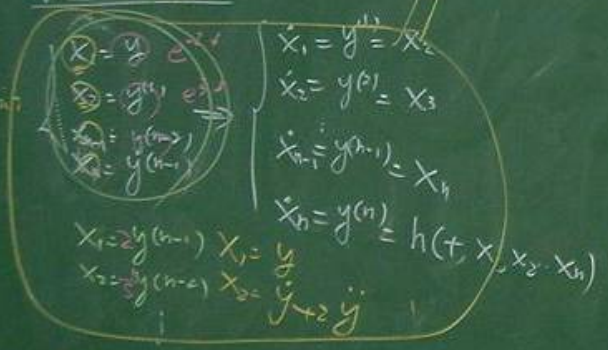 x₁ = y
x₂ = y⁽¹⁾
xₙ₋₁ = y⁽ⁿ⁻²⁾
xₙ = y⁽ⁿ⁻¹⁾
ẋ₁ = y⁽¹⁾ = x₂
ẋ₂ = y⁽²⁾ = x₃
ẋₙ₋₁ = y⁽ⁿ⁻¹⁾ = xₙ
ẋₙ = y⁽ⁿ⁾ = h(t, x₁, x₂ ... xₙ)
x₁ = 2y⁽ⁿ⁻¹⁾ x₁ = y
x₂ = ẏ + 2ÿ